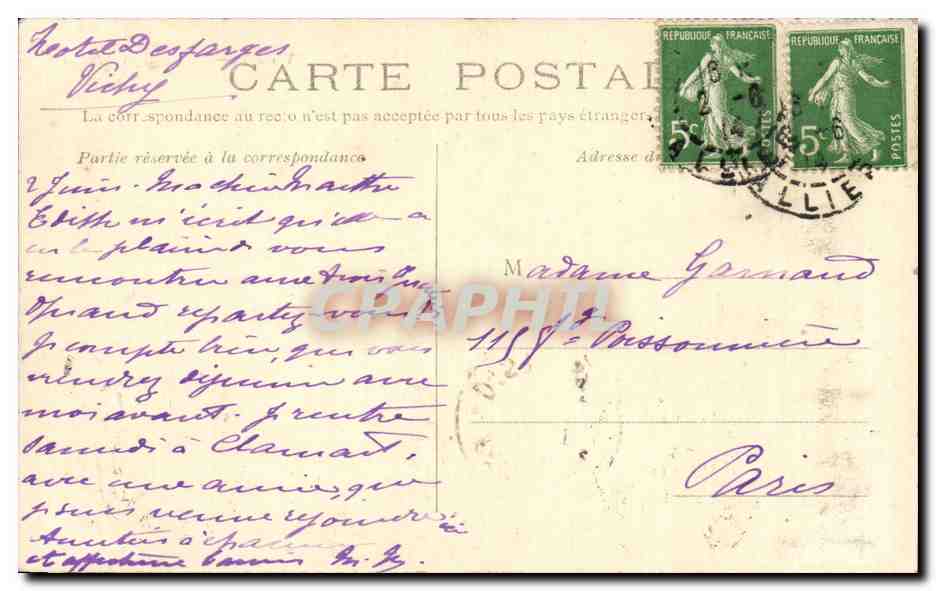 Hotel Desfarges
Vichy
CARTE POSTAL
La correspondance au recto n'est pas acceptée par tous les pays étrangers
Partie réservée à la correspondance
Adresse d
REPUBLIQUE FRANÇAISE
5c
POSTES
REPUBLIQUE FRANÇAISE
5c
POSTES
ALLIER
2 Juin. Ma chère Marthe
Edith m'écrit qu'elle a
eu le plaisir de vous
rencontrer aux trois
Quand repartez-vous
Je compte bien que vous
viendrez déjeuner avec
moi avant. Je rentre
samedi à Clamart,
avec une amie que
je suis venue rejoindre ici
Amitiés à
et affectueux baisers
Madame Garnaud
115 fg Poissonnière
Paris
CPAPHIL